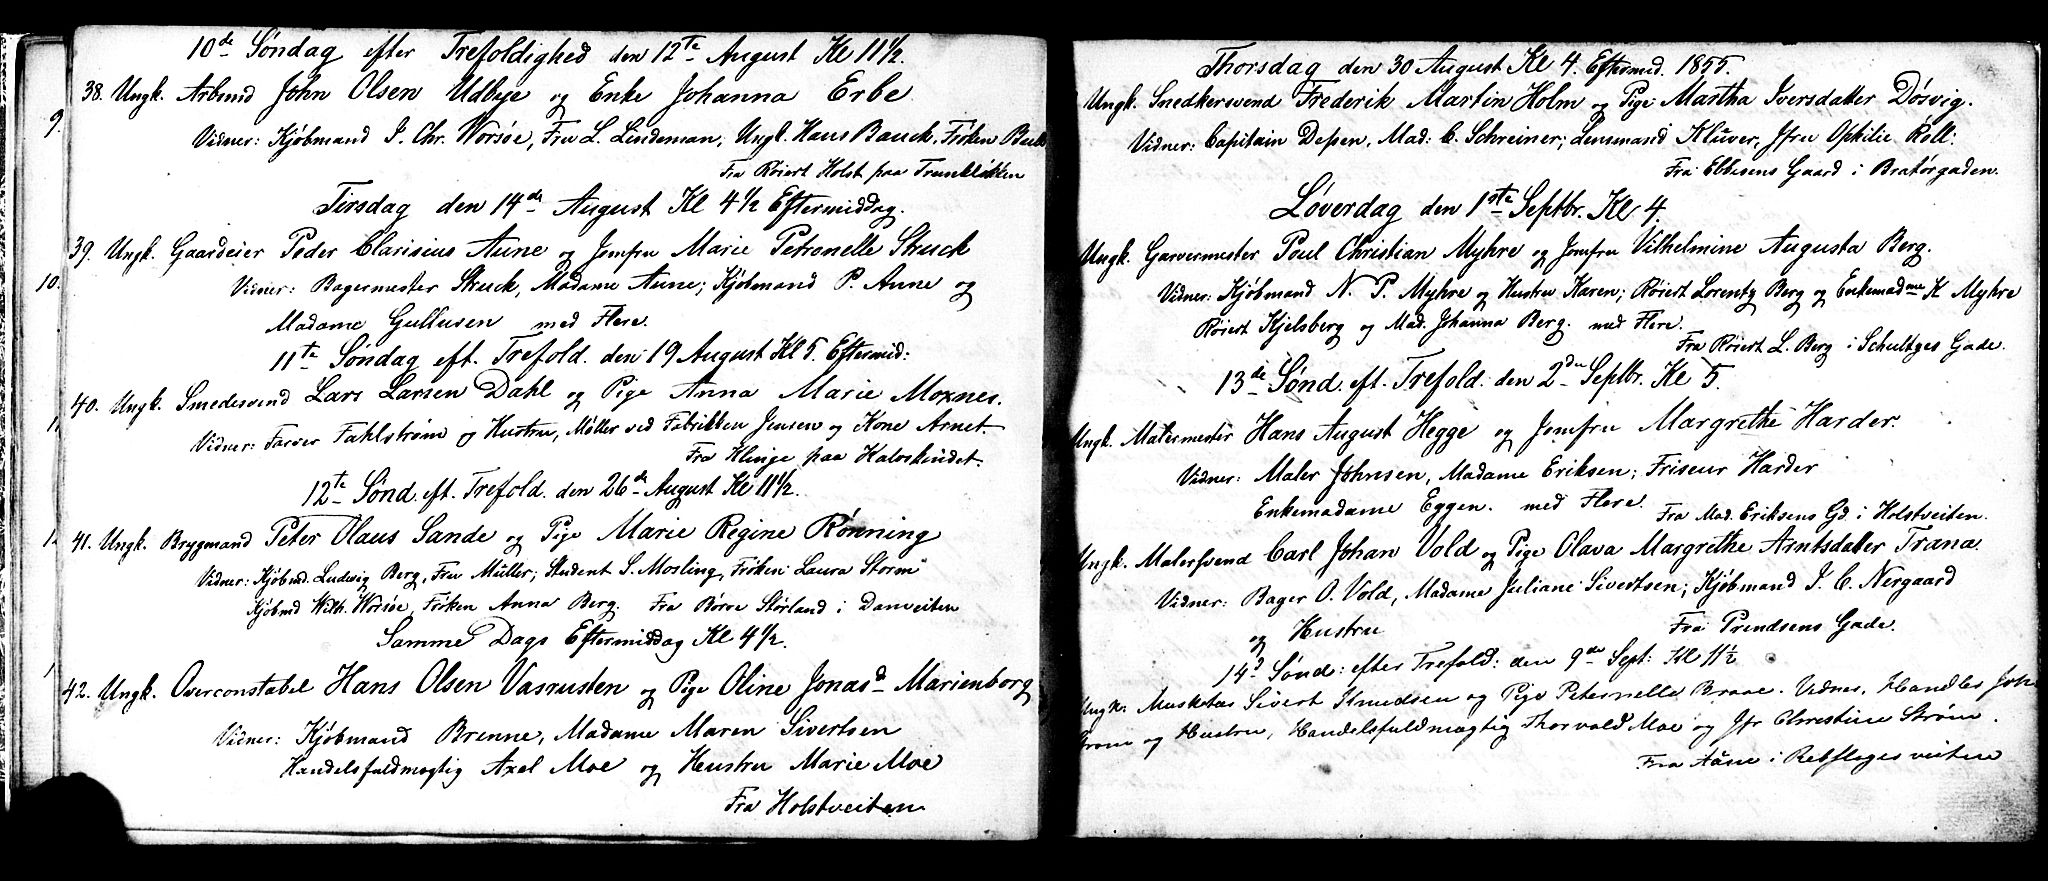 10de Søndag efter Trefoldighed den 12te August Kl 11½.
38. Ungk. Arbmd John Olsen Udbye og Enke Johanna Erbe
9.
Vidner: Kjøbmand I. Chr. Worsøe, Fru L. Lindeman, Ungk. Hans Bauck, Frøken
Fra Röiert Holst paa
Tirsdag den 14de August Kl 4½ Eftermiddag.
39. Ungk. Gaardeier Peder Clarisius Aune og Jomfru Marie Petronelle Skuck
10.
Vidner: Bagermester Skuck, Madame Aune; Kjøbmand P. Aune og
Madame Gullusen med Flere.
11te Søndag eft. Trefold. den 19 August Kl 5. Eftermid:
40. Ungk. Smedesvend Lars Larsen Dahl og Pige Anna Marie Moxnes.
Vidner: Farver Fahlstrøm og Hustru, Møller ved Fabrikken Jensen og Kone Arnet.
Fra Klinge paa Kalvskindet.
12te Sønd. eft. Trefold. den 26de August Kl 11½.
41. Ungk. Brygmand Peter Olaus Sande og Pige Marie Regine Rønning
Vidner: Kjøbmd. Ludvig Berg, Fru Müller; Student S. Mosling, Frøken Laura Storm
Kjøbmd Wilh. Worsøe, Frøken Anna Berg. Fra Börre Störland i Danveiten
Samme Dags Eftermiddag Kl 4½.
42. Ungk. Overconstabel Hans Olsen Vasrusten og Pige Oline Jonasd Marienborg
Vidner: Kjøbmand Brenne, Madame Maren Sivertsen
Handelsfuldmægtig Axel Moe og Hustru Marie Moe
Fra Holstveiten
Thorsdag den 30 August Kl 4. Eftermid. 1855.
Ungk. Snedkersvend Frederik Martin Holm og Pige Martha Iversdatter Døsvig.
Vidner: Capitain Dessen, Mad: C. Schreiner; Lensmand Klüver, Jfru Ophilie Röll:
Fra Ebbesens Gaard i Bratørgaden.
Løverdag den 1ste Septbr. Kl 4.
Ungk. Garvermester Poul Christian Myhre og Jomfru Vilhelmine Augusta Berg.
Vidner: Kjøbmand N. P. Myhre og Hustru Karen; Röiert Lorentz Berg og Enkemadme K Myhre
Röiert Kjelsberg og Mad. Johanna Berg. med Flere.
Fra Röiert L. Berg i Schultzes Gade.
13de Sønd. eft. Trefold. den 2den Septbr. Kl 5.
Ungk. Malermester Hans August Hegge og Jomfru Margrethe Harder.
Vidner: Maler Johnsen, Madame Eriksen; Friseur Harder
Enkemadame Eggen. med Flere.
Fra Mad. Eriksens Gd. i Holstveiten.
Ungk. Malersvend Carl Johan Vold og Pige Olava Margrethe Arntsdatter Trana.
Vidner: Bager O. Vold, Madame Juliane Sivertsen; Kjøbmand I. C. Nergaard
og Hustru
Fra Prindsens Gade.
14d Sønd: efter Trefold: den 9de Sept: Kl 11½
Ungk: Musketer Sivert Knudsen og Pige Peternelle Braae. Vidner, Handler Joh.
og Hustru, Handelsfuldmægtig Thorvald Moe og Jfr Christine Strøm.
Fra Aune i Rebslagerveiten